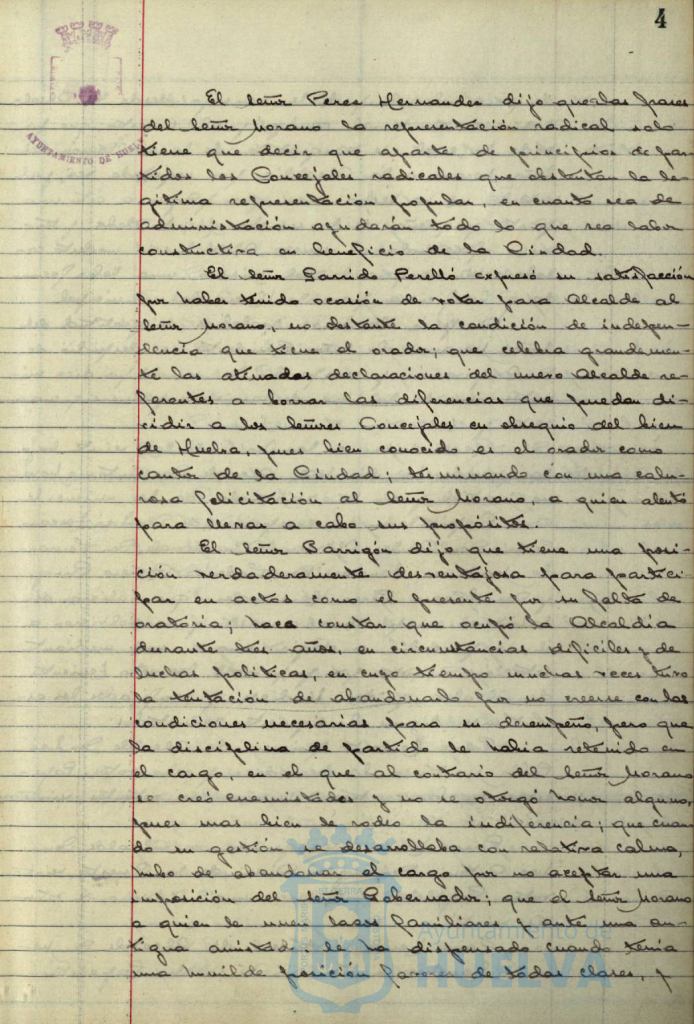 4
AYUNTAMIENTO DE HUELVA
El Señor Perez Hernandez dijo que a las frases
del Señor Morano la representación radical solo
tiene que decir que aparte de principios de par-
tidos los Concejales radicales que obstentan la le-
gitima representación popular, en cuanto sea de
administración ayudarán todo lo que sea labor
constructiva en beneficio de la Ciudad.
El Señor Garrido Perelló expresó su satisfacción
por haber tenido ocasión de votar para Alcalde al
Señor Morano, no obstante la condición de indepen-
dencia que tiene el orador; que celebra grandemen-
te las atinadas declaraciones del nuevo Alcalde re-
ferentes a borrar las diferencias que puedan di-
vidir a los Señores Concejales en obsequio del bien
de Huelva, pues bien conocido es el orador como
cantor de la Ciudad; terminando con una calu-
rosa felicitación al Señor Morano, a quien alentó
para llevar a cabo sus propósitos.
El Señor Barrigón dijo que tiene una posi-
ción verdaderamente desventajosa para partici-
par en actos como el presente por su falta de
oratoria; hace constar que ocupó la Alcaldía
durante tres años, en circunstancias dificiles y de
luchas politicas, en cuyo tiempo muchas veces tuvo
la tentación de abandonarlo por no creerse con las
condiciones necesarias para su desempeño, pero que
la disciplina de partido le habia retenido en
el cargo, en el que al contrario del Señor Morano
se creó enemistades y no se otorgó honor alguno,
pues mas bien le rodeo la indiferencia; que cuan-
do su gestión se desarrollaba con relativa calma,
hubo de abandonar el cargo por no aceptar una
imposición del Señor Gobernador; que el Señor Morano
a quien le unen lazos familiares y ante una an-
tigua amistad, le ha dispensado cuando tenia
una humilde posición favores de todas clases, y
Ayuntamiento de
HUELVA